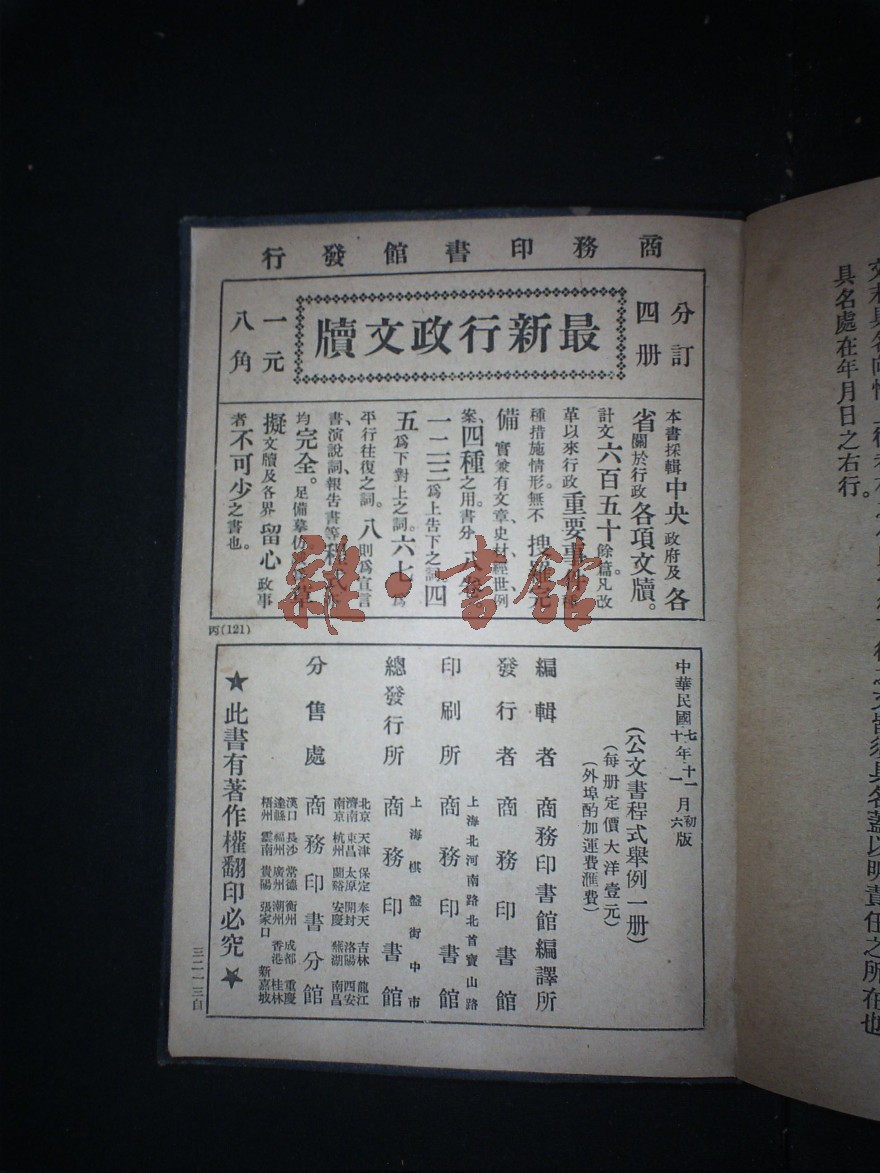 商務印書館發行
分訂
四册
最新行政文牘
一元
八角
本書採輯中央政府及各
省關於行政各項文牘。
計文六百五十餘篇。凡改
革以來行政重要事件
種措施情形。無不搜
備實兼有文章、史材、經世、例
案、四種之用。書分
一二三爲上告下之詞。四
五爲下對上之詞。六七爲
平行往復之詞。八則爲宣言
書、演說詞、報告書等程式
均完全。足備摹仿
擬文牘及各界留心政事
者不可少之書也。
丙(121)
中華民國七年十一月初版
十一年六版
(公文書程式舉例一册)
(每册定價大洋壹元)
(外埠酌加運費滙費)
編輯者 商務印書館編譯所
發行者 商務印書館
上海北河南路北首寶山路
印刷所 商務印書館
上海棋盤街中市
總發行所 商務印書館
北京 天津 保定 奉天 吉林 龍江
濟南 東昌 太原 開封 洛陽 西安
南京 杭州 蘭谿 安慶 蕪湖 南昌
分售處 商務印書分館
漢口 長沙 常德 衡州 成都 重慶
達縣 福州 廣州 潮州 香港 桂林
梧州 雲南 貴陽 張家口 新嘉坡
★此書有著作權翻印必究★
三二一三自
雜·書館
具名處在年月日之右行。
之文皆須具名蓋以明責任之所在也